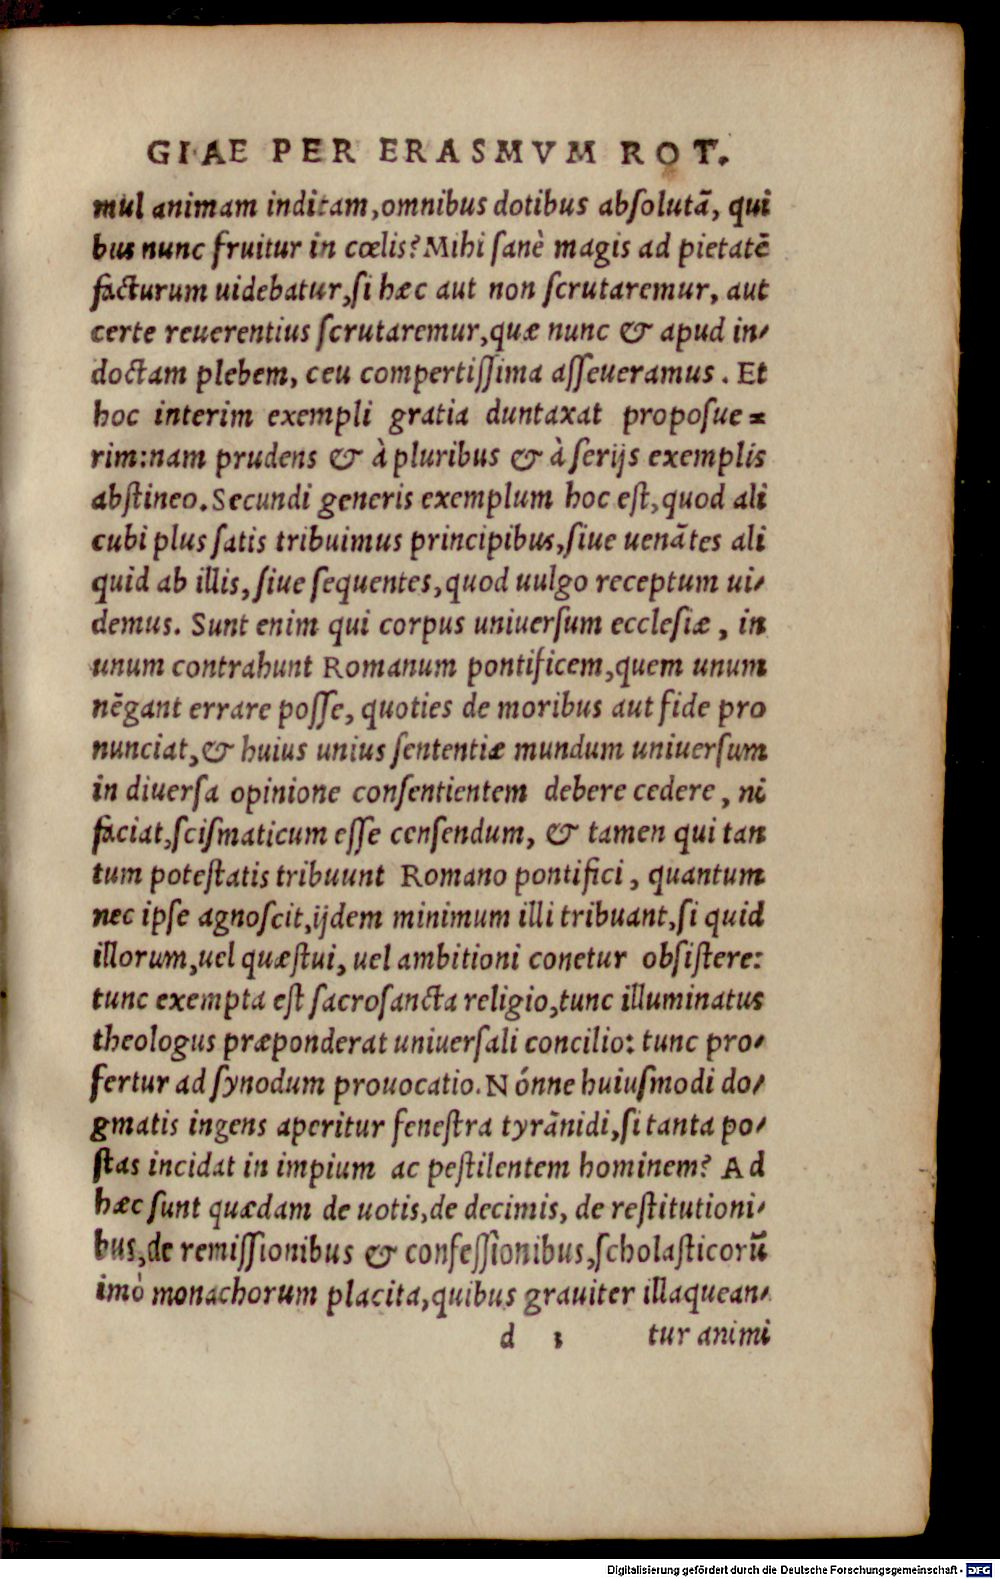 GIAE PER ERASMVM ROT.
mul animam inditam,omnibus dotibus absolutã, qui
bus nunc fruitur in cœlis?Mihi sanè magis ad pietatē
facturum uidebatur,si hæc aut non scrutaremur, aut
certe reuerentius scrutaremur,quæ nunc & apud in-
doctam plebem, ceu compertissima asseueramus. Et
hoc interim exempli gratia duntaxat proposue=
rim:nam prudens & à pluribus & à serijs exemplis
abstineo. Secundi generis exemplum hoc est,quod ali
cubi plus satis tribuimus principibus,siue uenãtes ali
quid ab illis, siue sequentes,quod uulgo receptum ui-
demus. Sunt enim qui corpus uniuersum ecclesiæ, in
unum contrahunt Romanum pontificem,quem unum
nēgant errare posse, quoties de moribus aut fide pro
nunciat,& huius unius sententiæ mundum uniuersum
in diuersa opinione consentientem debere cedere, ni
faciat,scismaticum esse censendum, & tamen qui tan
tum potestatis tribuunt Romano pontifici, quantum
nec ipse agnoscit,ijdem minimum illi tribuant,si quid
illorum,uel quæstui, uel ambitioni conetur obsistere:
tunc exempta est sacrosancta religio,tunc illuminatus
theologus præponderat uniuersali concilio: tunc pro-
fertur ad synodum prouocatio. Nónne huiusmodi do-
gmatis ingens aperitur fenestra tyrãnidi,si tanta po-
stas incidat in impium ac pestilentem hominem? Ad
hæc sunt quædam de uotis,de decimis, de restitutioni-
bus,de remissionibus & confessionibus,scholasticorũ
imò monachorum placita,quibus grauiter illaquean-
d 3 tur animi
Digitalisierung gefördert durch die Deutsche Forschungsgemeinschaft - DFG